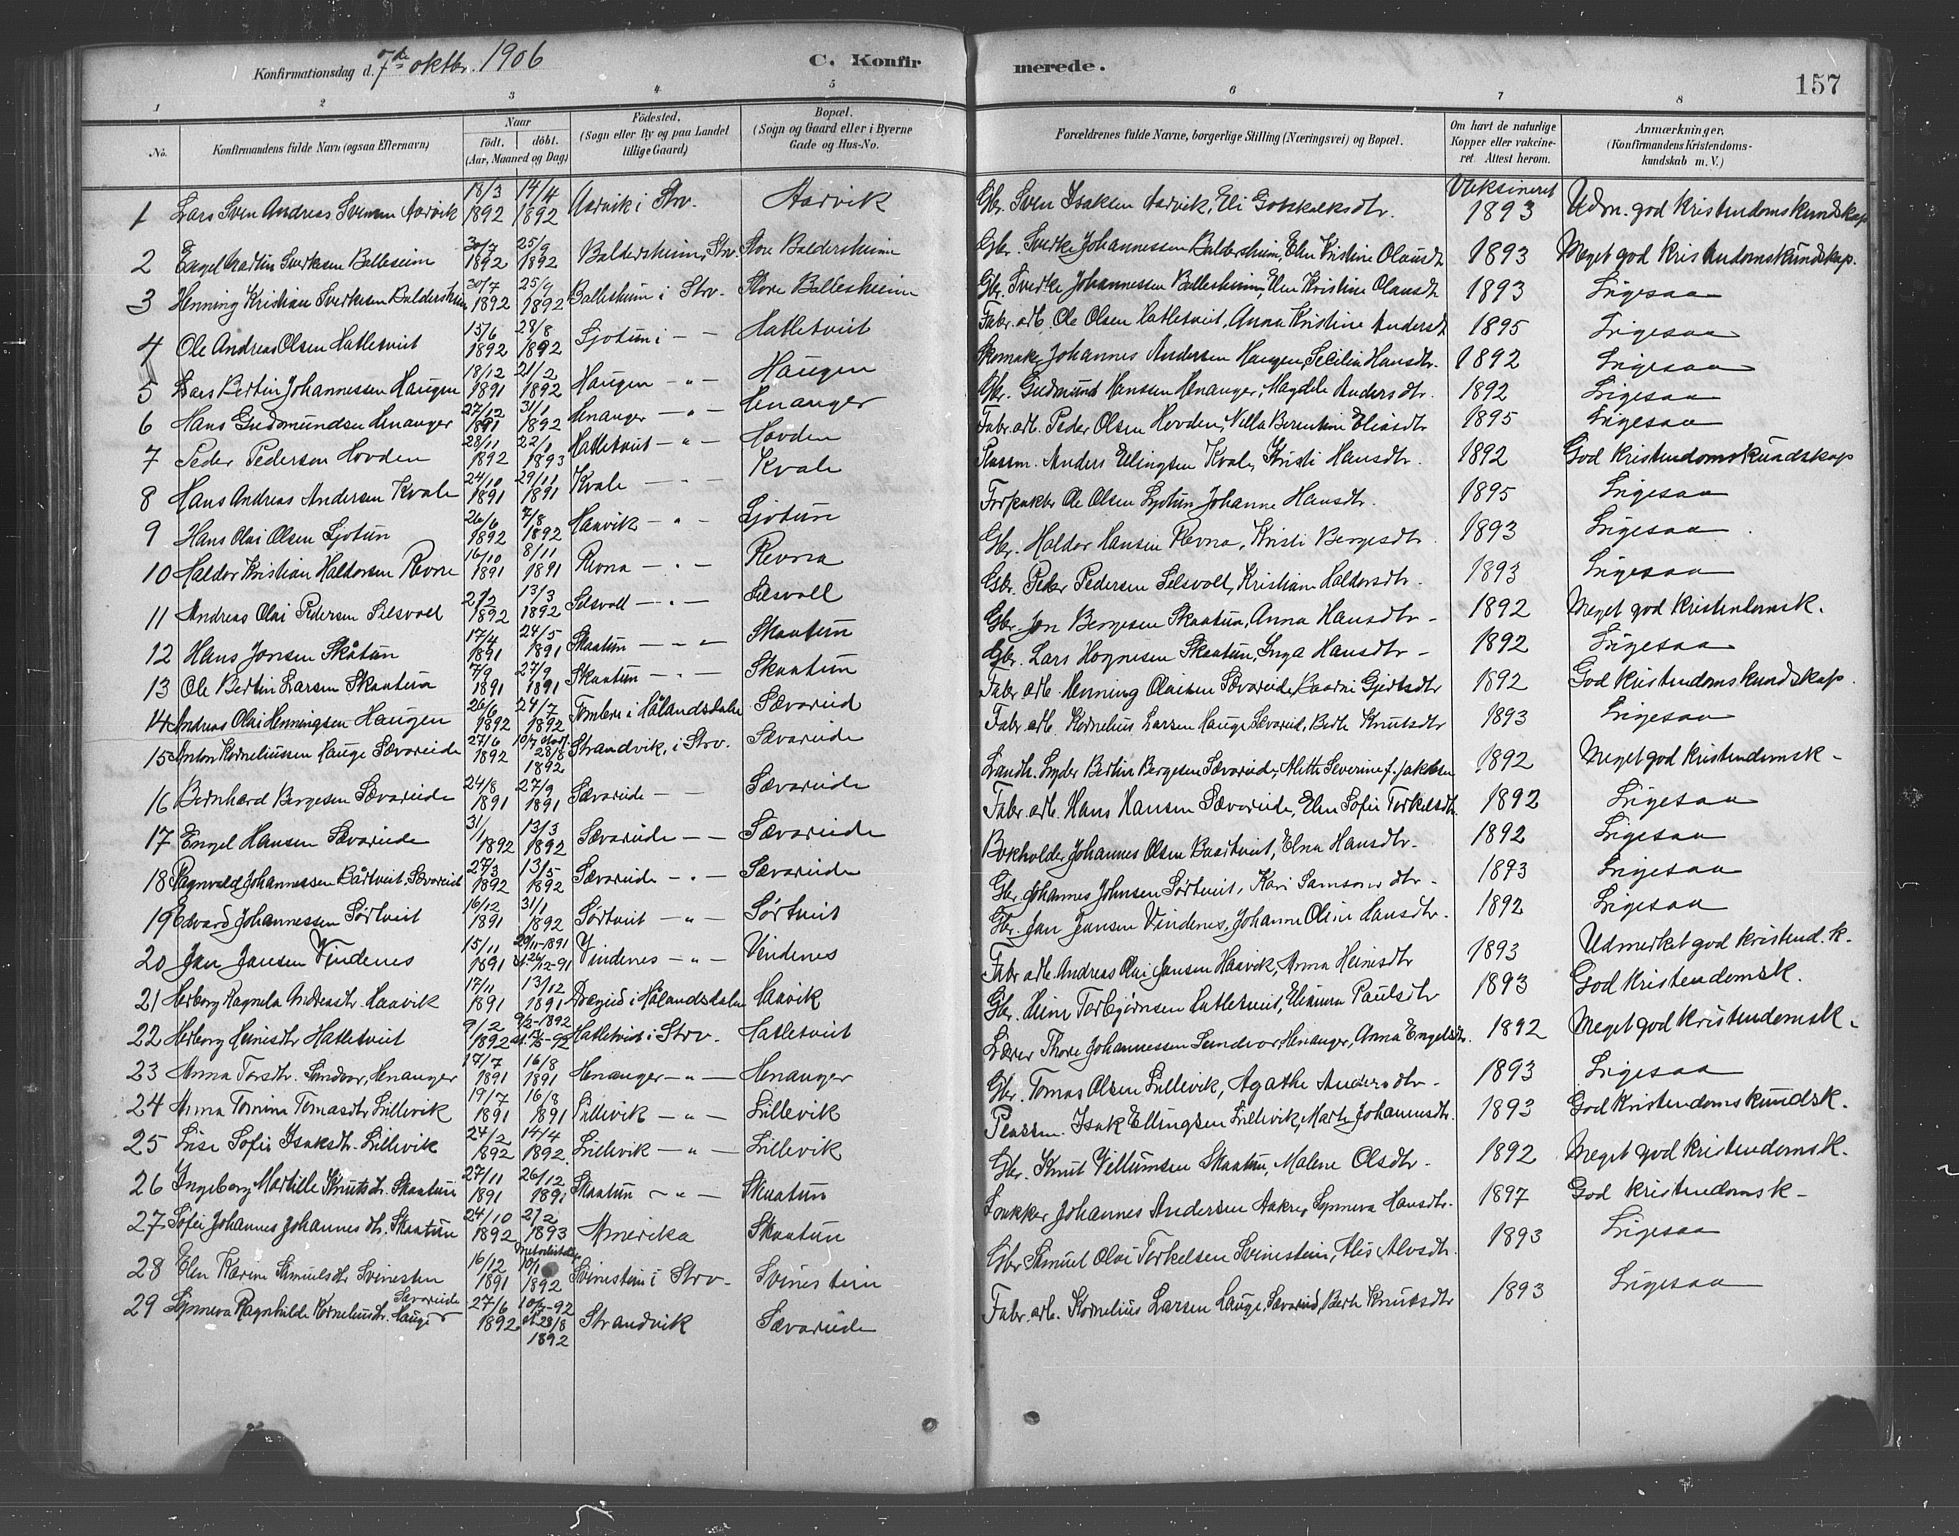 Konfirmationsdag d. 7de oktbr. 1906
C. Konfirmerede.
157
1 2 3 4 5 6 7 8
No.
Konfirmandens fulde Navn (ogsaa Efternavn)
Naar født. døbt. (Aar, Maaned og Dag)
Fødested. (Sogn eller By og paa Landet tillige Gaard)
Bopæl. (Sogn og Gaard eller i Byerne Gade og Hus-No.
Forældrenes fulde Navne, borgerlige Stilling (Næringsvei) og Bopæl.
Om havt de naturlige Kopper eller vakcineret Attest herom.
Anmærkninger. (Konfirmandens Kristendomskundskab m. V.)
1 Lars Sven Andreas Svensen Aarvik 18/3 1892 14/4 1892 Aarvik i Strv. Aarvik Gbr. Sven Isaksen Aarvik, Eli Gotskalksdtr. Vaksineret 1893 Udm. god Kristendomskundskap
2 Engel Martin Sverkesen Balleseim 30/7 1892 25/9 1892 Baldersheim, Strv. Store Baldersheim Gbr. Sverke Johannessen Baldersheim, Elen Kristine Olausdt 1893 Meget god Kristendomskundskap.
3 Henning Kristian Sverkesen Baldersheim 30/7 1892 25/9 1892 Ballesheim i Strv. Store Ballesheim Gbr. Sverke Johannessen Ballesheim, Elen Kristine Olausdt 1893 Ligesaa
4 Ole Andreas Olsen Hatletveit 15/6 1892 28/8 1892 Ljotun i – – Hatletveit Fabr. arb. Ole Olsen Hatletveit, Anna Kristine Andersdt 1895 Ligesaa
5 Lars Bertin Johannessen Haugen 18/12 1891 21/2 1892 Haugen – " – Haugen Skomake Johannes Andersen Haugen, Secilia Hansdtr. 1892 Ligesaa
6 Hans Gudmundsen Henanger 27/12 1891 31/1 1892 Henanger – " – Henanger Gbr. Gudmund Hansen Henanger, Magdele Andersdtr. 1892 Ligesaa
7 Peder Pedersen Hovden 28/11 1892 22/1 1893 Hatletveit – " – Hovden Fabr. arb. Peder Olsen Hovden, Nilla Berentine Eliasdtr 1895 Ligesaa
8 Hans Andreas Andersen Kvale 24/10 1891 29/11 1891 Kvale – – – Kvale Plassm. Anders Ellingsen Kvale, Kristi Hansdtr. 1892 God Kristendomskundskap
9 Hans Olai Olsen Ljotun 26/6 1892 7/8 1892 Haavik – " – Ljotun Forpakter Ole Olsen Ljotun Johanne Hansdtr. 1895 Ligesaa
10 Haldor Kristian Haldorsen Revne 16/10 1891 8/11 1891 Revna – " – Revna Gbr. Haldor Hansen Revna, Kristi Bergesdtr. 1893 Ligesaa
11 Andreas Olai Pedersen Selsvoll 2/2 1892 13/3 1892 Selsvoll – " – Selsvoll Gbr. Peder Pedersen Selsvoll, Kristian Haldorsdtr. 1893 Ligesaa
12 Hans Jonsen Skåtun 17/4 1891 24/5 1891 Skaatun – – " Skaatun Gbr. Jon Bergesen Skaatun, Anna Hansdtr – 1892 Meget god Kristendomsk.
13 Ole Bertin Larsen Skaatun 7/9 1891 27/9 1891 Skaatun – " – Skaatun Gbr. Lars Hognesen Skaatun, Inga Hansdtr – 1892 Ligesaa
14 Andreas Olai Henningsen Haugen 26/6 1892 24/7 1892 i Hålandsdalen Sævareid Fabr. arb. Henning Olaisen Sævareide, Gjertsdtr 1892 God Kristendomskundskap.
15 Anton Korneliussen Hauge Sævareide 27/6 1892 28/8 1892 Strandvik, i Strv. Sævareide Fabr. arb. Kornelius Larsen Hauge, Sævareid, Berte Knutsdtr 1893 Ligesaa
16 Bernhard Bergesen Sævareide 24/8 1891 27/9 1891 Sævareide – – Sævareide Landh. Snyder Bertin Bergesen Sævareide, Mette Severine f. Jakobsen 1892 Meget god Kristendomsk –
17 Engel Hansen Sævareide 31/1 1892 13/3 1892 Sævareide – – Sævareide Fabr. arb. Hans Hansen Sævareide, Elen Sofie Torkelsdtr. 1892 Ligesaa
18 Ragnvald Johannessen Bårtveit, Sævareid 27/3 1892 13/5 1892 Sævareide – " – Sævareide Bokholder Johannes Olsen Baartveit, Elna Hansdtr. 1892 Ligesaa
19 Edvard Johannessen Sørtveit 16/12 1891 31/1 1892 Sørtveit – " – Sørtveit Gbr. Johannes Johnsen Sørtveit, Kari Samsonsdtr – 1893 Ligesaa
20 Jan Jansen Vindenes 15/11 1891 29/11-1891 st. 26/12-91 Vindenes – " – Vindenes Gbr. Jan Jansen Vindenes, Johanne Oline Hansdtr. 1892 Ligesaa
21 Herborg Ragnela Andreasdtr. Haavik 17/11 1891 13/12 1891 i Hålandsdalen Haavik Fabr. arb. Andreas Olai Jansen Haavik, Anna Heinesdtr 1893 Udmerket god Kristend. k.
22 Herborg Heinesdtr Hatletveit 9/2 1892 9/2-1892 Hatletveit i Strv. Hatletveit Gbr. Heine Torbjørnsen Hatletveit, Elianna Paulsdtr 1893 God Kristendomsk.
23 Anna Torsdtr. Sundvor, Henanger 17/7 1891 16/8 1891 Henanger – " – Henanger Lærer Thore Johannessen Sundvor, Henanger, Anna Engelsdtr. 1892 Meget god Kristendomsk.
24 Anna Tomine Tomasdtr Lillevik 19/7 1891 16/8 1891 Lillevik – " – Lillevik Gbr. Tomas Olsen Lillevik, Agathe Andersdtr – 1893 Ligesaa
25 Lise Sofie Isaksdtr. Lillevik 24/2 1892 14/4 1892. Lillevik – " – Lillevik Plassm. Isak Ellingsen Lillevik, Marta Johannsdtr. 1893 God Kristendomskundsk.
26 Ingeborg Martille Knutsdtr. Skaatun 27/11 1891 26/12 1891 Skaatun – " – Skaatun Gbr. Knut Villumsen Skaatun, Malene Olsdtr – 1892 Meget god Kristendomsk.
27 Sofie Johannes Johannesdtr. Skaatun 24/10 1892 2/2 1893 Amerika Skaatun Johannes Andersen Aakre, Synneva Hansdtr. 1897 God Kristendomsk –
28 Elen Karine Samuelsdtr Svinesten 16/12 1891 10/1 1892 Svinestein i Strv. Svinestein Gbr Samuel Olai Torkelsen Svinestein, Alis Alvsdtr. 1893 Ligesaa
29 Synneva Ragnhilde Korneliusdtr. Hauge Sævareide 27/6 1892 10/7-92 st. 28/8 1892 Strandvik Sævareide Fabr. arb. Kornelius Larsen Hauge, Sævareid, Berte Knutsdtr 1893 Ligesaa